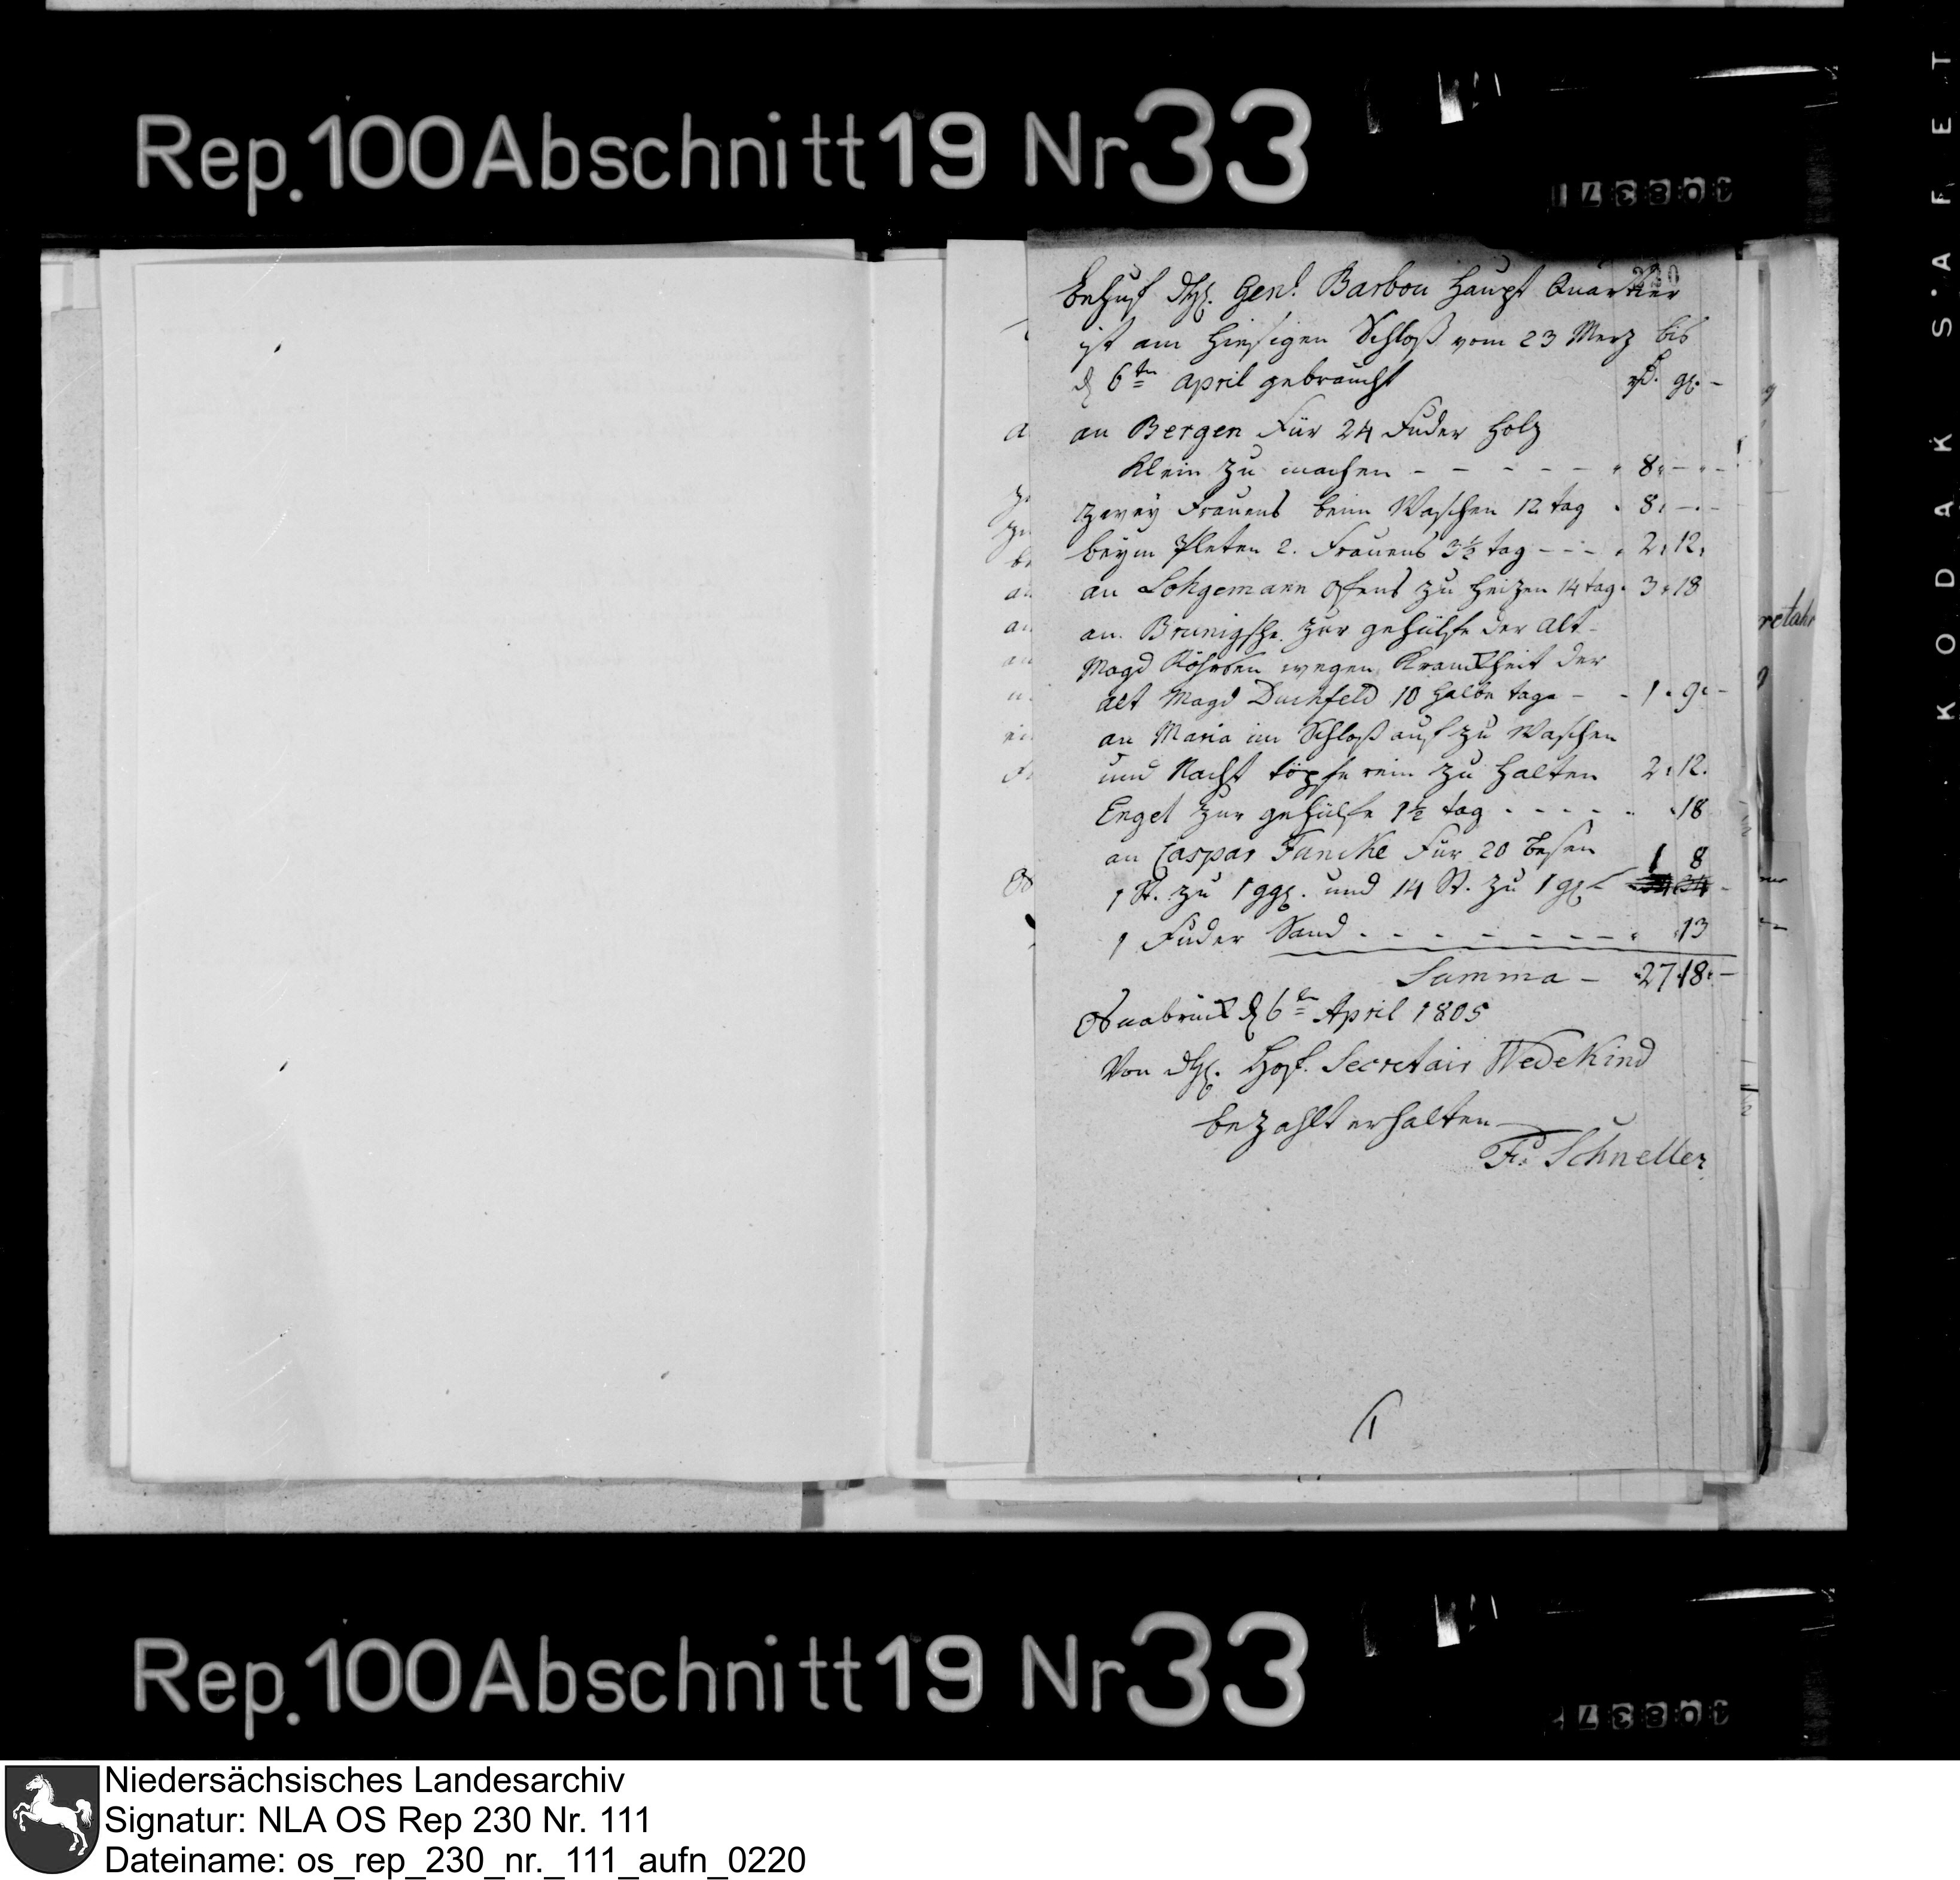 Rep.100Abschnitt19 Nr33
Behuf des Gen!. Barbou Haupt Quartier
ist am hiesigen Schloß vom 23 Merz bis
d 6ten April gebraucht rd. gl. -
an Bergen Für 24 Fuder Holz
Klein zu machen - - - - - 8. -
zwey Frauens beim Waschen 12 tag 8. -
beym Pleten 2. Frauens 3½ tag - - - 2. 12.
an Lohgemann Ofens zu heizen 14 tag. 3. 18
an zur gehülfe der alt-
Magd wegen Krankheit der
alt Magd Duchfeld 10 halbe tage - - 1. 9. -
an Maria im Schloß auf zu Waschen
und Nacht töpfe rein zu halten 2. 12.
Engel zur gehülfe 1½ tag - - - - - 18
an Caspar Funcke Für 20 besen 1 8
St. zu 1 ggl. und 14 St. zu 1 gl
1 Fuder Sand - - - - - - - 13
Summa - 27 18. -
Osnabrück d 6te April 1805
Von des Hof. Secretair Wedekind
bezahlt erhalten
Fr. Schneller
Rep.100Abschnitt19 Nr33
KODAK SAFET
Niedersächsisches Landesarchiv
Signatur: NLA OS Rep 230 Nr. 111
Dateiname: os_rep_230_nr._111_aufn_0220